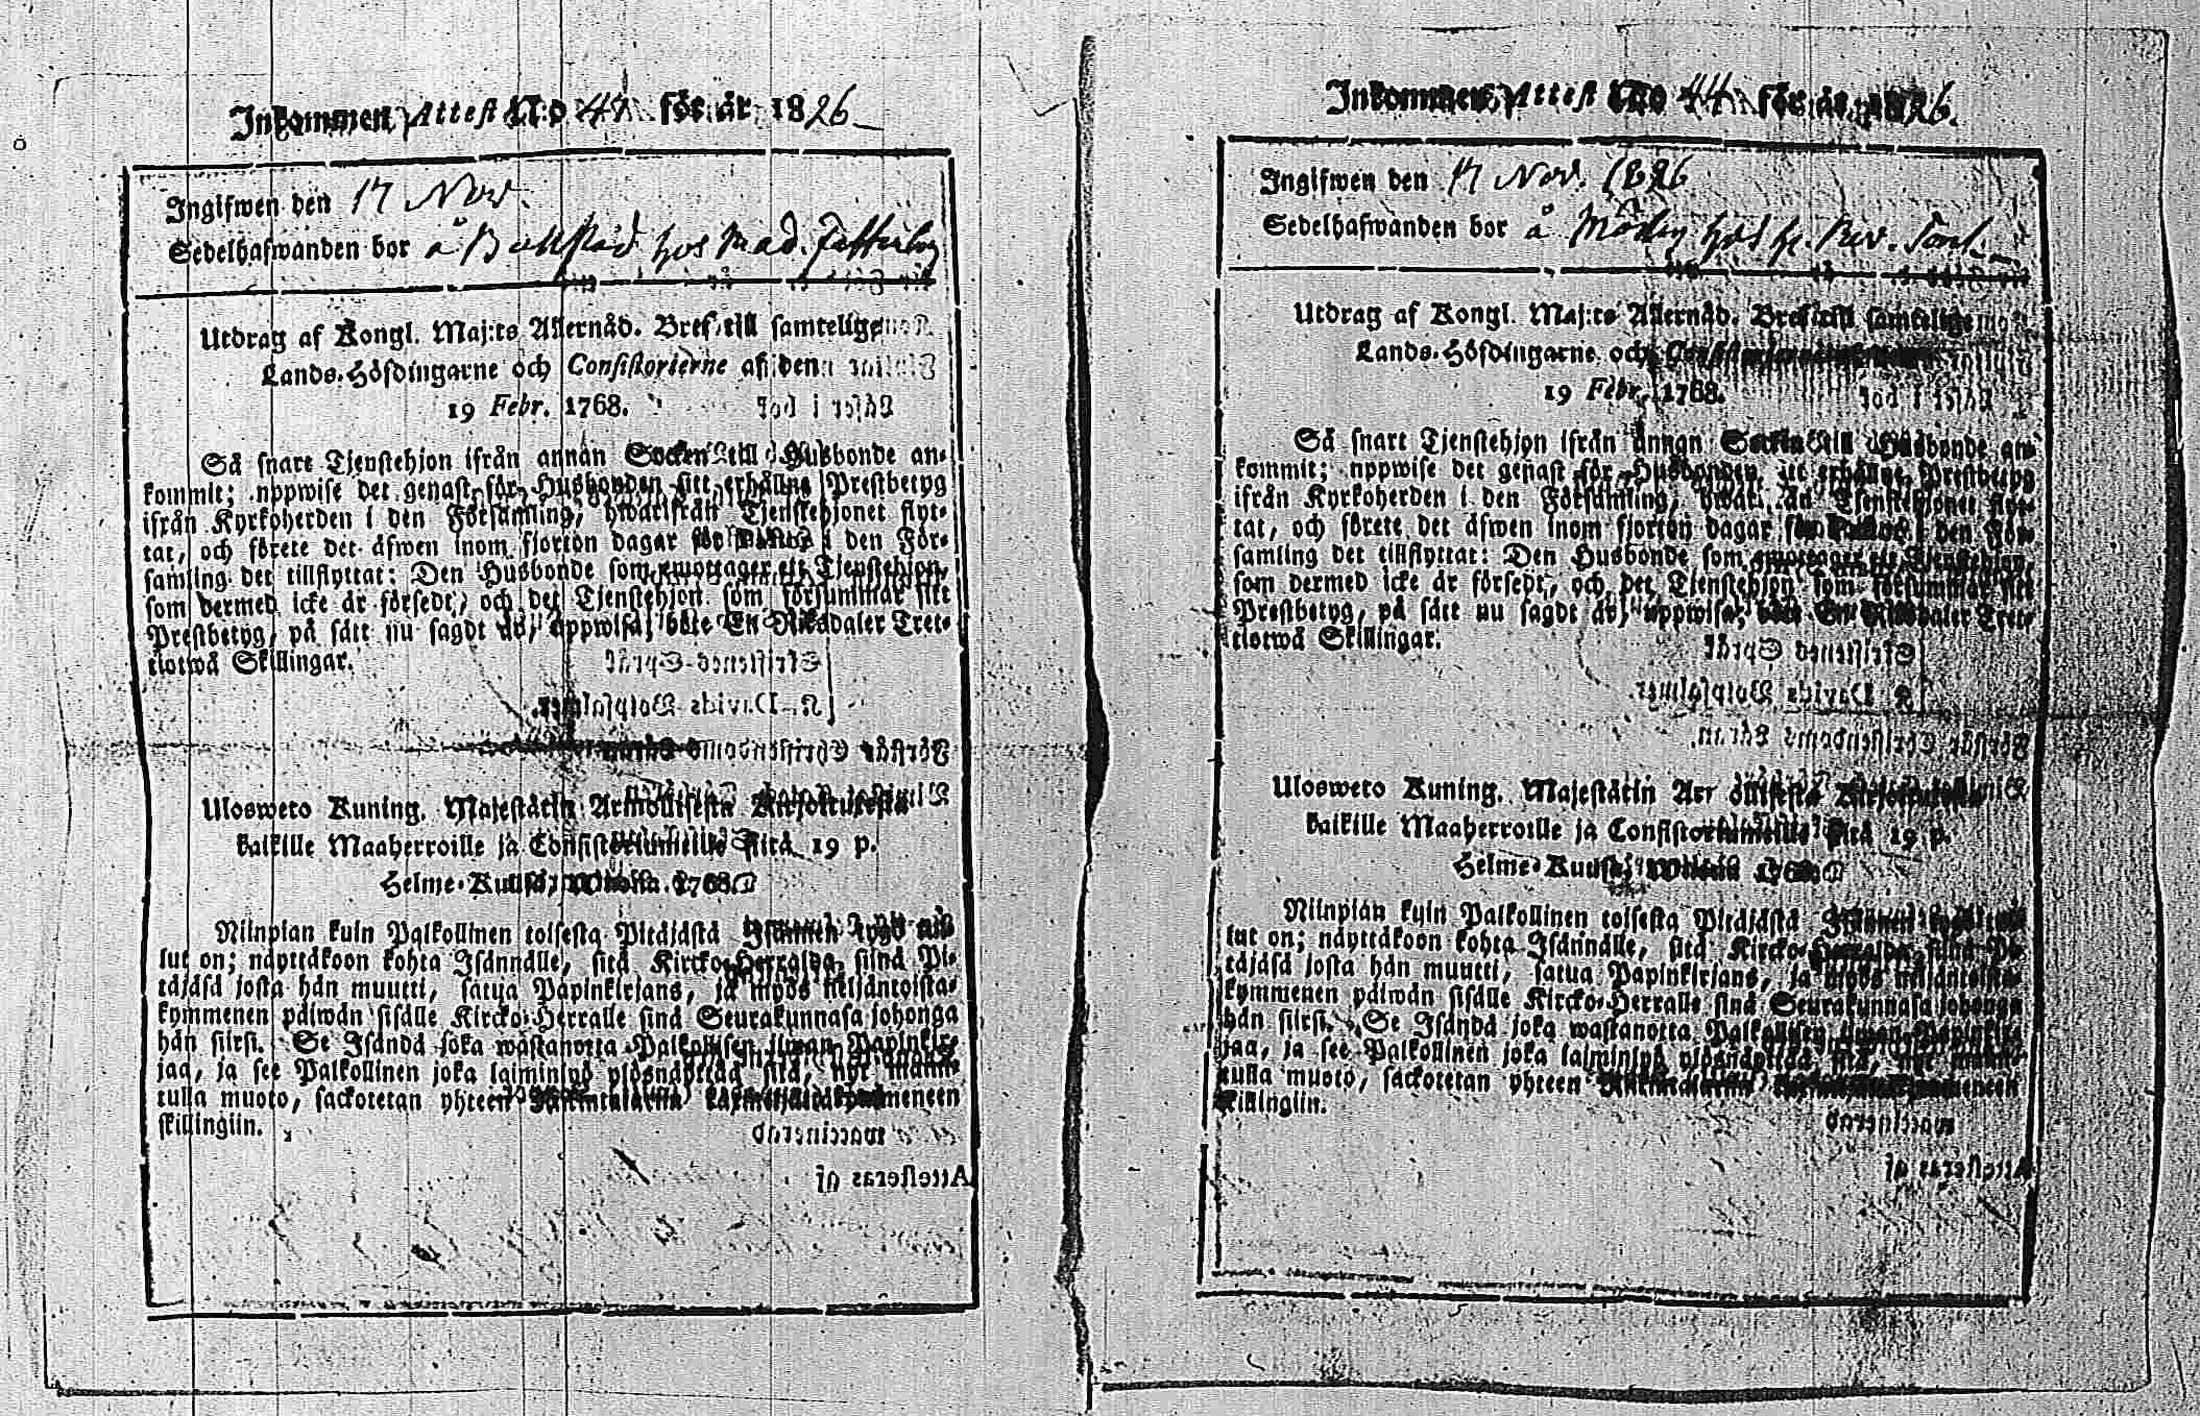 Inkommen Attest N:o 47 för år 1826
Ingifwen den 17 Nov.
Sedelhafwanden bor å hos Mad.
Utdrag af Kongl. Maj:ts Allernåd. Bref till samtelige
Lands-Höfdingarne och Consistorierne af den
19 Febr. 1768.
Så snart Tjenstehjon ifrån annan Socken till Husbonde an-
kommit; uppwise det genast för Husbonden sitt erhållne Prestbetyg
ifrån Kyrkoherden i den Församling, hwarifrån Tjenstehjonet flyt-
tat, och förete det äfwen inom fjorton dagar för i den För-
samling det tillflyttat: Den Husbonde som emottager ett Tjenstehjon,
som dermed icke är försedt, och det Tjenstehjon som försummar sitt
Prestbetyg, på sätt nu sagdt är, uppwisa, böte En Riksdaler Tret-
tiotwå Skillingar.
Ulosweto Kuning. Majestätin Armollisesta Kirjoituxesta
kaikille Maaherroille ja Consistoriumeille sitä 19 p.
Helme-Kuusa, 1768.
Niinpian kuin Palkollinen toisesta Pitäjästä Isännen tygö tul-
lut on; näyttäkoon kohta Isännälle, sitä Kircko-Herralda siinä Pi-
täjäsä josta hän muutti, satua Papinkirjans, ja myös neljäntoista-
kymmenen päiwän sisälle Kircko-Herralle siinä Seurakunnasa johonga
hän siirsi. Se Isändä joka wastanotta Palkollisen ilman Papinkir-
jaa, ja see Palkollinen joka laiminlyö ylösnäyttää sitä, nyt mainit-
tulla muoto, sackotetan yhteen
skillingiin.
Inkommen Attest N:o 44 för år 1826.
Ingifwen den 17 Nov. 1826
Sedelhafwanden bor å hos
Utdrag af Kongl. Maj:ts Allernåd. Bref till samtelige
Lands-Höfdingarne och Consistorierne
19 Febr. 1768.
Så snart Tjenstehjon ifrån annan Socken till Husbonde an-
kommit; uppwise det genast för Husbonden sitt erhållne Prestbetyg
ifrån Kyrkoherden i den Församling, hwarifrån Tjenstehjonet flyt-
tat, och förete det äfwen inom fjorton dagar för i den För-
samling det tillflyttat: Den Husbonde som emottager ett Tjenstehjon,
som dermed icke är försedt, och det Tjenstehjon som försummar sitt
Prestbetyg, på sätt nu sagdt är, uppwisa, böte En Riksdaler Tret-
tiotwå Skillingar.
Ulosweto Kuning. Majestätin
kaikille Maaherroille ja Consistoriumeille sitä 19 p.
Helme-Kuusa, 1768.
Niinpian kuin Palkollinen toisesta Pitäjästä Isännen
lut on; näyttäkoon kohta Isännälle, sitä Kircko-Herralda siinä Pi-
täjäsä josta hän muutti, satua Papinkirjans, ja myös neljäntoista-
kymmenen päiwän sisälle Kircko-Herralle siinä Seurakunnasa johonga
hän siirsi. Se Isändä joka wastanotta Palkollisen ilman Papinkir-
jaa, ja see Palkollinen joka laiminlyö ylösnäyttää sitä, nyt
tulla muoto, sackotetan yhteen
skillingiin.